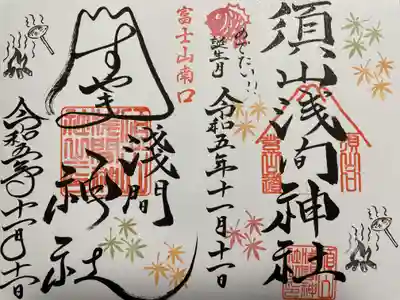 須山浅间神社
須山口
登山道
めでたい!!
誕生月
令和五年十一月十一日
富士山南口
すやま
淺間
神社
令和五年十一月十一日